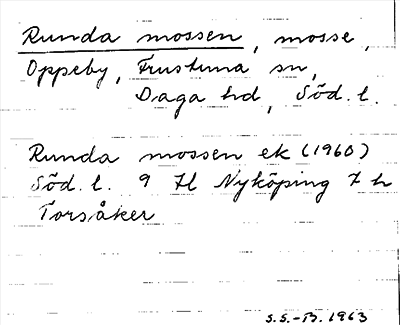 Runda mossen, mosse,
Oppeby, Frustuna sn,
Daga hd, Söd. l.
Runda mossen ek (1960)
Söd. l. 9 Il Nyköping 7 h
Torsåker
S.S.-B. 1963